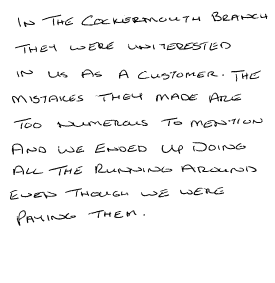 IN THE COCKERMOUTH BRANCH
THEY WERE UNITERESTED
IN US AS A CUSTOMER. THE
MISTAKES THEY MADE ARE
TOO NUMEROUS TO MENTION
AND WE ENDED UP DOING
ALL THE RUNNING AROUND
EVEN THOUGH WE WERE
PAYING THEM.